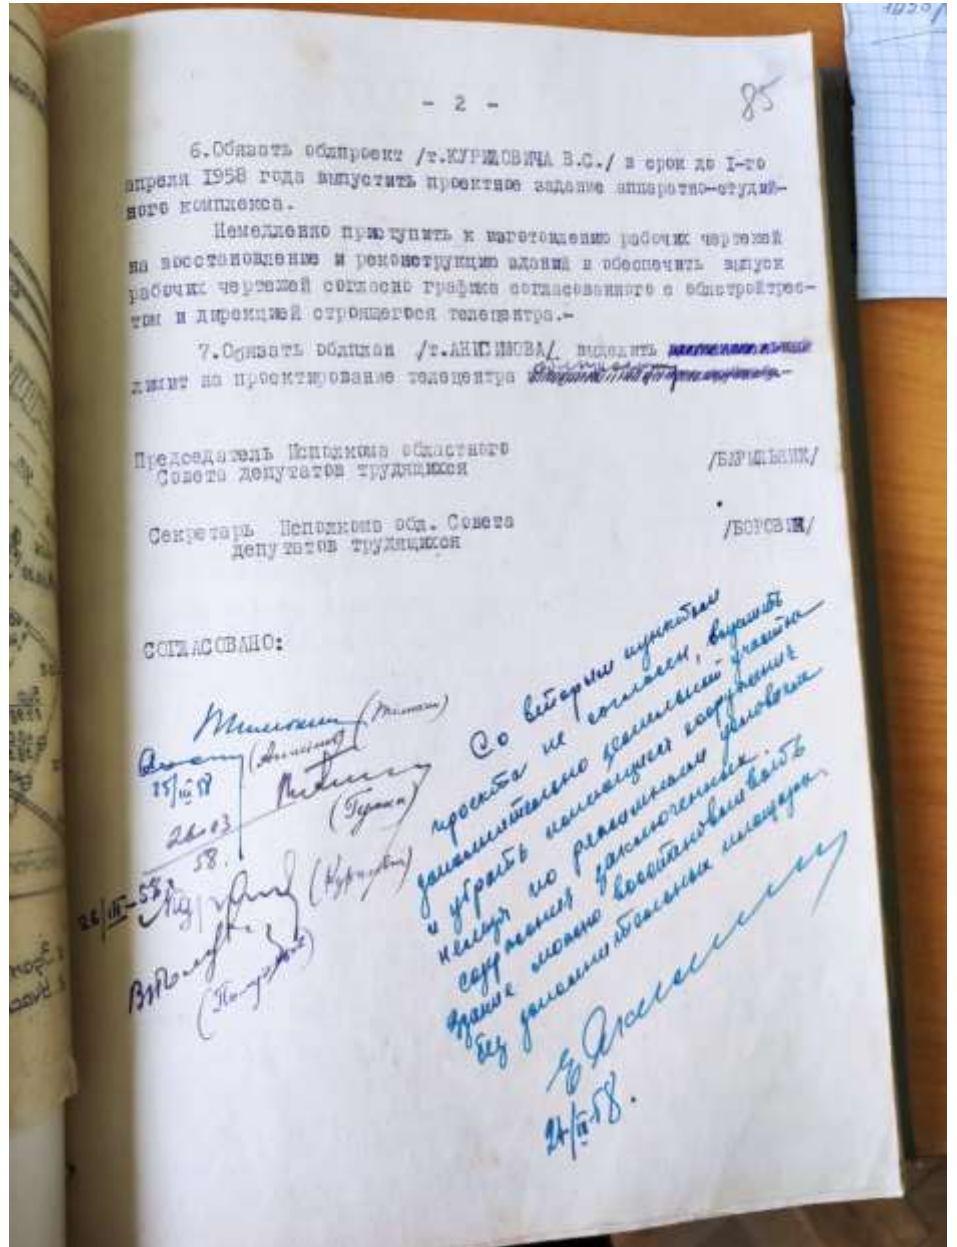 - 2 -
85
6.Обязать облпроект /т.КУРИЛОВИЧА В.С./ в срок до I-го
апреля 1958 года выпустить проектное задание аппаратно-студий-
ного комплекса.
Немедленно приступить к изготовлению рабочих чертежей
на восстановление и реконструкцию зданий и обеспечить выпуск
рабочих чертежей согласно графика согласованного с облстройтрес-
том и дирекцией строящегося телецентра.-
7.Обязать облплан /т.АНИСИМОВА/ выделить
лимит на проектирование телецентра
Председатель Исполкома областного
Совета депутатов трудящихся
/БУРИЛЬНИК/
Секретарь Исполкома обл. Совета
депутатов трудящихся
/БОРОВИК/
СОГЛАСОВАНО:
25/III 58
26.03
58.
(Курилович)
26/III-58г.
Со вторым пунктом
проекта не согласен, выделить
дополнительно земельный участок
и убрать имеющиеся сооружения
нельзя по режимным условиям
содержания заключенных.
Здание можно восстанавливать
без дополнительных площадей.
/III-58.